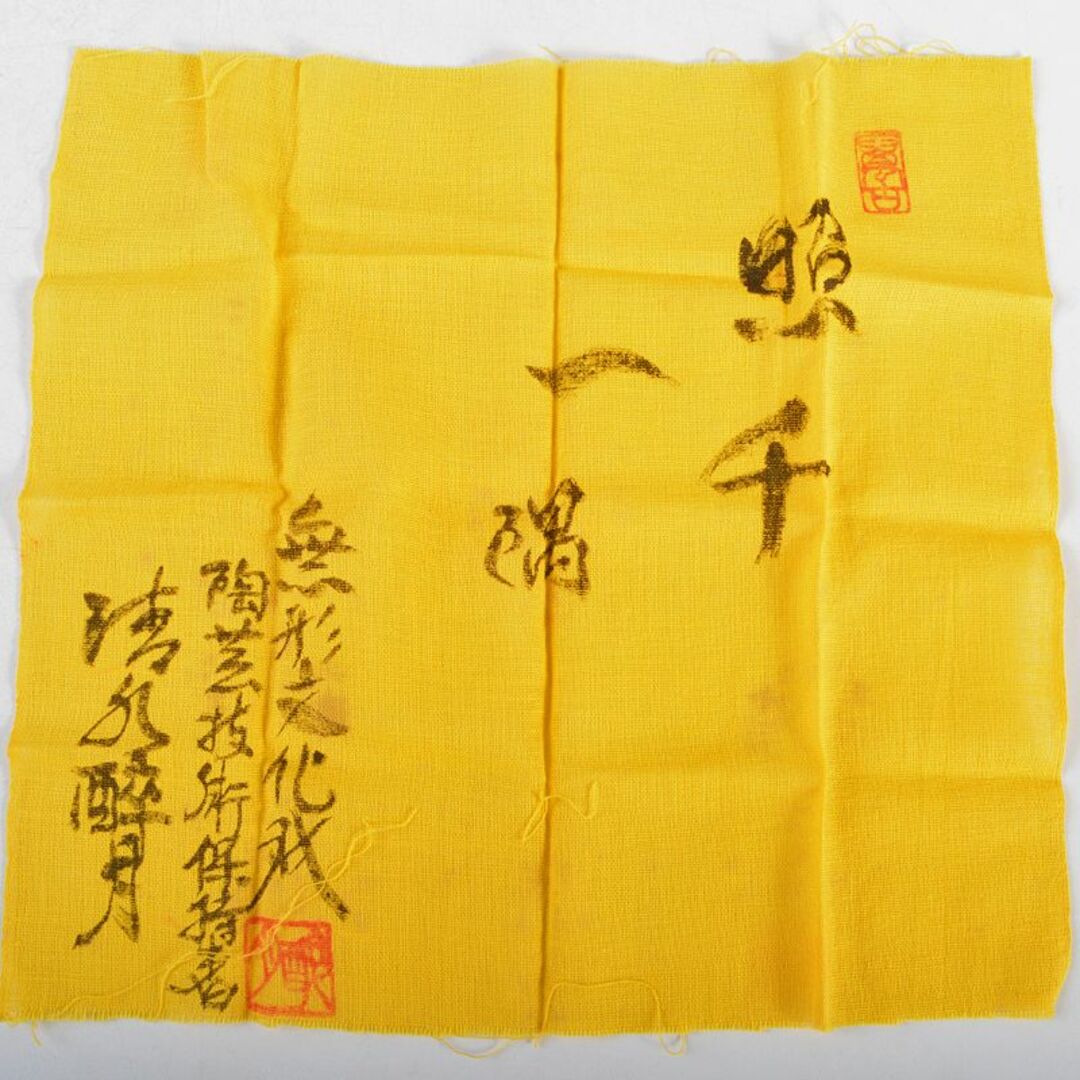 照千
一隅
無形文化財
陶芸技術保持者
清水酔月